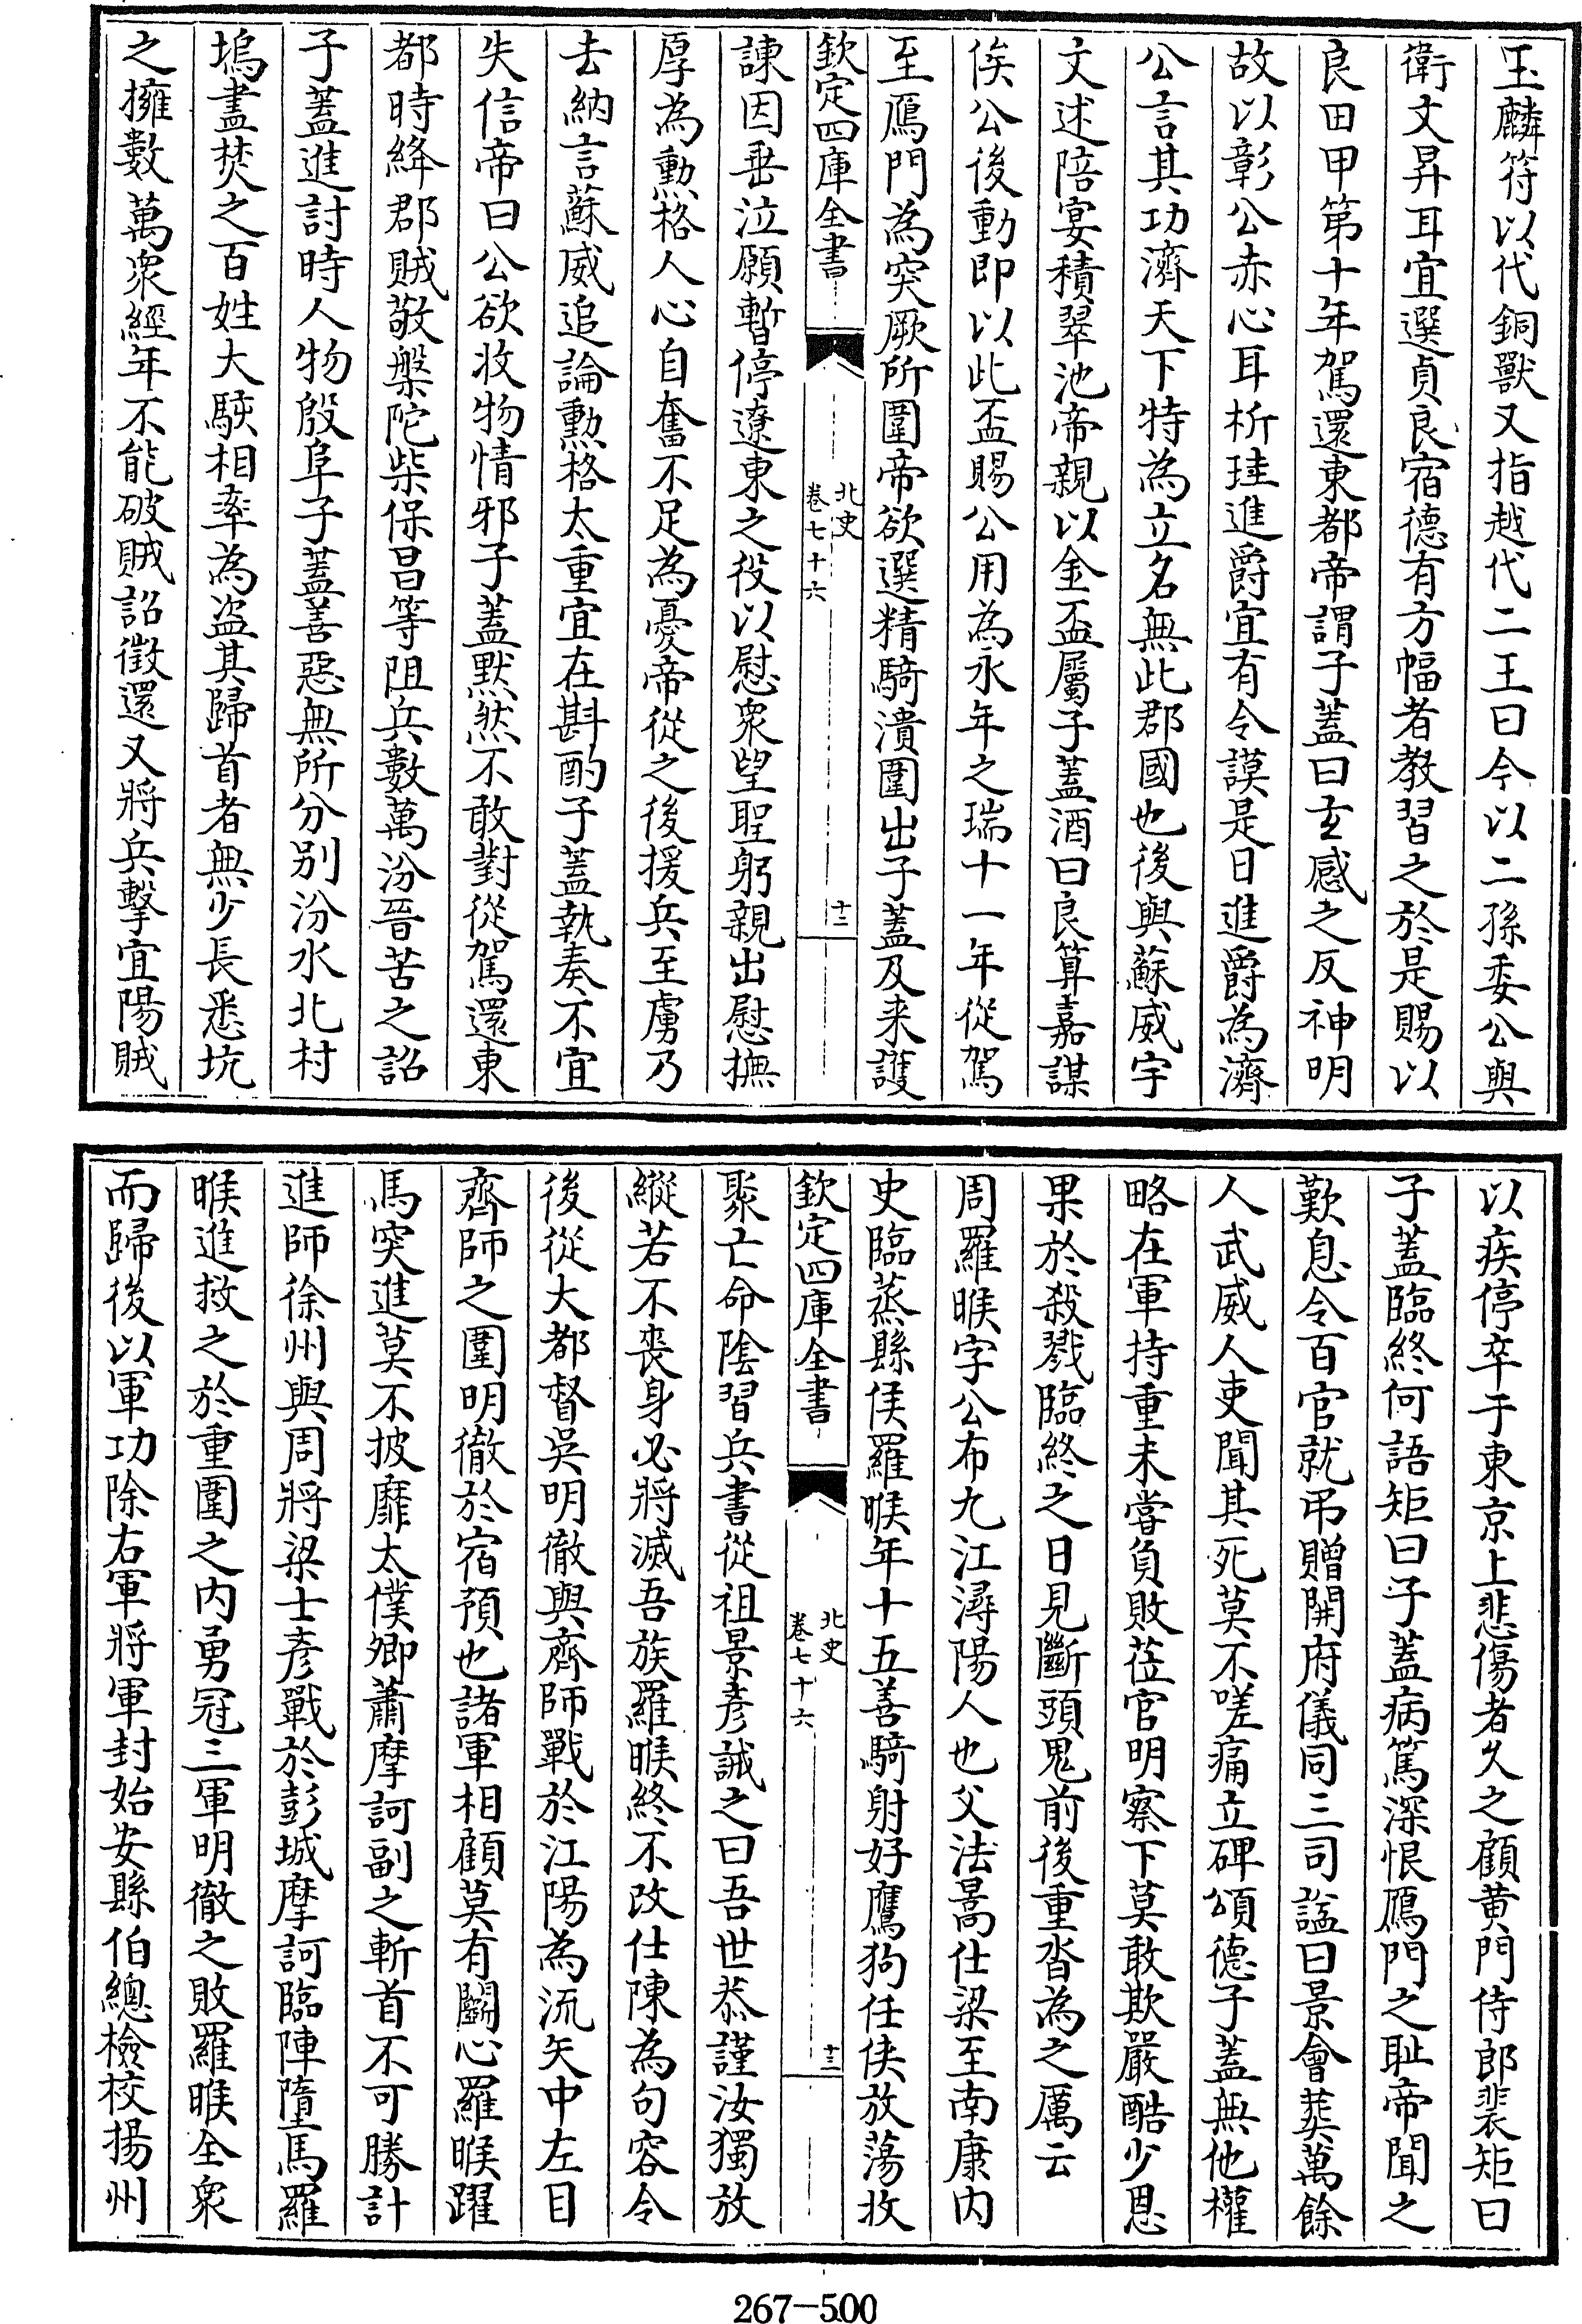 玉麟符以代銅獸又指越代二王曰今以二孫委公與
衛文昇耳宜選貞良宿德有方幅者教習之於是賜以
良田甲第十年駕還東都帝謂子蓋曰玄感之反神明
故以彰公赤心耳析珪進爵宜有令謨是日進爵為濟
公言其功濟天下特為立名無此郡國也後與蘇威宇
文述陪宴積翠池帝親以金盃屬子蓋酒曰良算嘉謀
俟公後動即以此盃賜公用為永年之瑞十一年從駕
至鴈門為突厥所圍帝欲選精騎潰圍出子蓋及来護
欽定四庫全書
北史
卷七十六
十二
諫因垂泣願暫停遼東之役以慰衆望聖躬親出慰撫
厚為勲格人心自奮不足為憂帝從之後援兵至虜乃
去納言蘇威追論勲格太重宜在斟酌子蓋執奏不宜
失信帝曰公欲收物情邪子蓋默然不敢對從駕還東
都時絳郡賊敬槃陀柴保昌等阻兵數萬汾晉苦之詔
子蓋進討時人物殷阜子蓋善惡無所分别汾水北村
塢盡焚之百姓大駭相率為盗其歸首者無少長悉坑
之擁數萬衆經年不能破賊詔徵還又將兵擊宜陽賊
以疾停卒于東京上悲傷者久之顧黄門侍郎裴矩曰
子蓋臨終何語矩曰子蓋病篤深恨鴈門之耻帝聞之
歎息令百官就弔贈開府儀同三司諡曰景會葬萬餘
人武威人吏聞其死莫不嗟痛立碑頌德子蓋無他權
略在軍持重未嘗負敗莅官明察下莫敢欺嚴酷少恩
果於殺戮臨終之日見斷頭鬼前後重沓為之厲云
周羅睺字公布九江潯陽人也父法暠仕梁至南康内
史臨蒸縣侯羅睺年十五善騎射好鷹狗任俠放蕩收
欽定四庫全書
北史
卷七十六
十三
聚亡命陰習兵書從祖景彦誡之曰吾世恭謹汝獨放
縱若不喪身必將滅吾族羅睺終不改仕陳為句容令
後從大都督吳明徹與齊師戰於江陽為流矢中左目
齊師之圍明徹於宿預也諸軍相顧莫有鬭心羅睺躍
馬突進莫不披靡太僕卿蕭摩訶副之斬首不可勝計
進師徐州與周將梁士彦戰於彭城摩訶臨陣墮馬羅
睺進救之於重圍之内勇冠三軍明徹之敗羅睺全衆
而歸後以軍功除右軍將軍封始安縣伯總檢校揚州
267-500